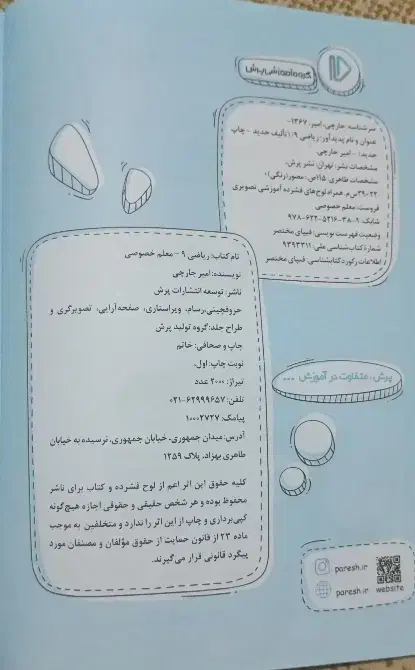 گروه آموزشی پرش
سرشناسه: جارچی، امیر، ۱۳۶۷-
عنوان و نام پدیدآور: ریاضی ۹ /: تألیف جدید - چاپ
جدید / - امیر جارچی.
مشخصات نشر: تهران: نشر پرش،
مشخصات ظاهری: ۵۱۵ص.: مصور(رنگی)؛
۲۲-۳۹س‌م. همراه لوح‌های فشرده آموزشی تصویری
فروست: معلم خصوصی
شابک: ۹-۳۸-۵۳۱۶-۶۲۲-۹۷۸
وضعیت فهرست نویسی: فیپای مختصر
شمارهٔ کتاب‌شناسی ملی: ۹۳۹۳۳۱۱
اطلاعات رکورد کتابشناسی: فیپای مختصر
نام کتاب: ریاضی ۹ - معلم خصوصی
نویسنده: امیر جارچی
ناشر: توسعه انتشارات پرش
حروفچینی،رسام، ویراستاری، صفحه‌آرایی، تصویرگری و
طراح جلد:گروه تولید پرش
چاپ و صحافی: خاتم
نوبت چاپ: اول،
تیراژ: ۲۰۰۰ عدد
تلفن: ۶۲۹۹۹۶۵۷-۰۲۱
پیامک: ۱۰۰۰۲۷۲۷
آدرس: میدان جمهوری، خیابان جمهوری، نرسیده به خیابان
طاهری بهزاد، پلاک ۱۲۵۹
کلیه حقوق این اثر اعم از لوح فشرده و کتاب برای ناشر
محفوظ بوده و هر شخص حقیقی و حقوقی اجازه هیچ‌گونه
کپی‌برداری و چاپ از این اثر را ندارد و متخلفین به موجب
ماده ۲۳ از قانون حمایت از حقوق مؤلفان و مصنفان مورد
پیگرد قانونی قرار می‌گیرند.
پرش، متفاوت در آموزش ...
paresh.ir
paresh.ir website